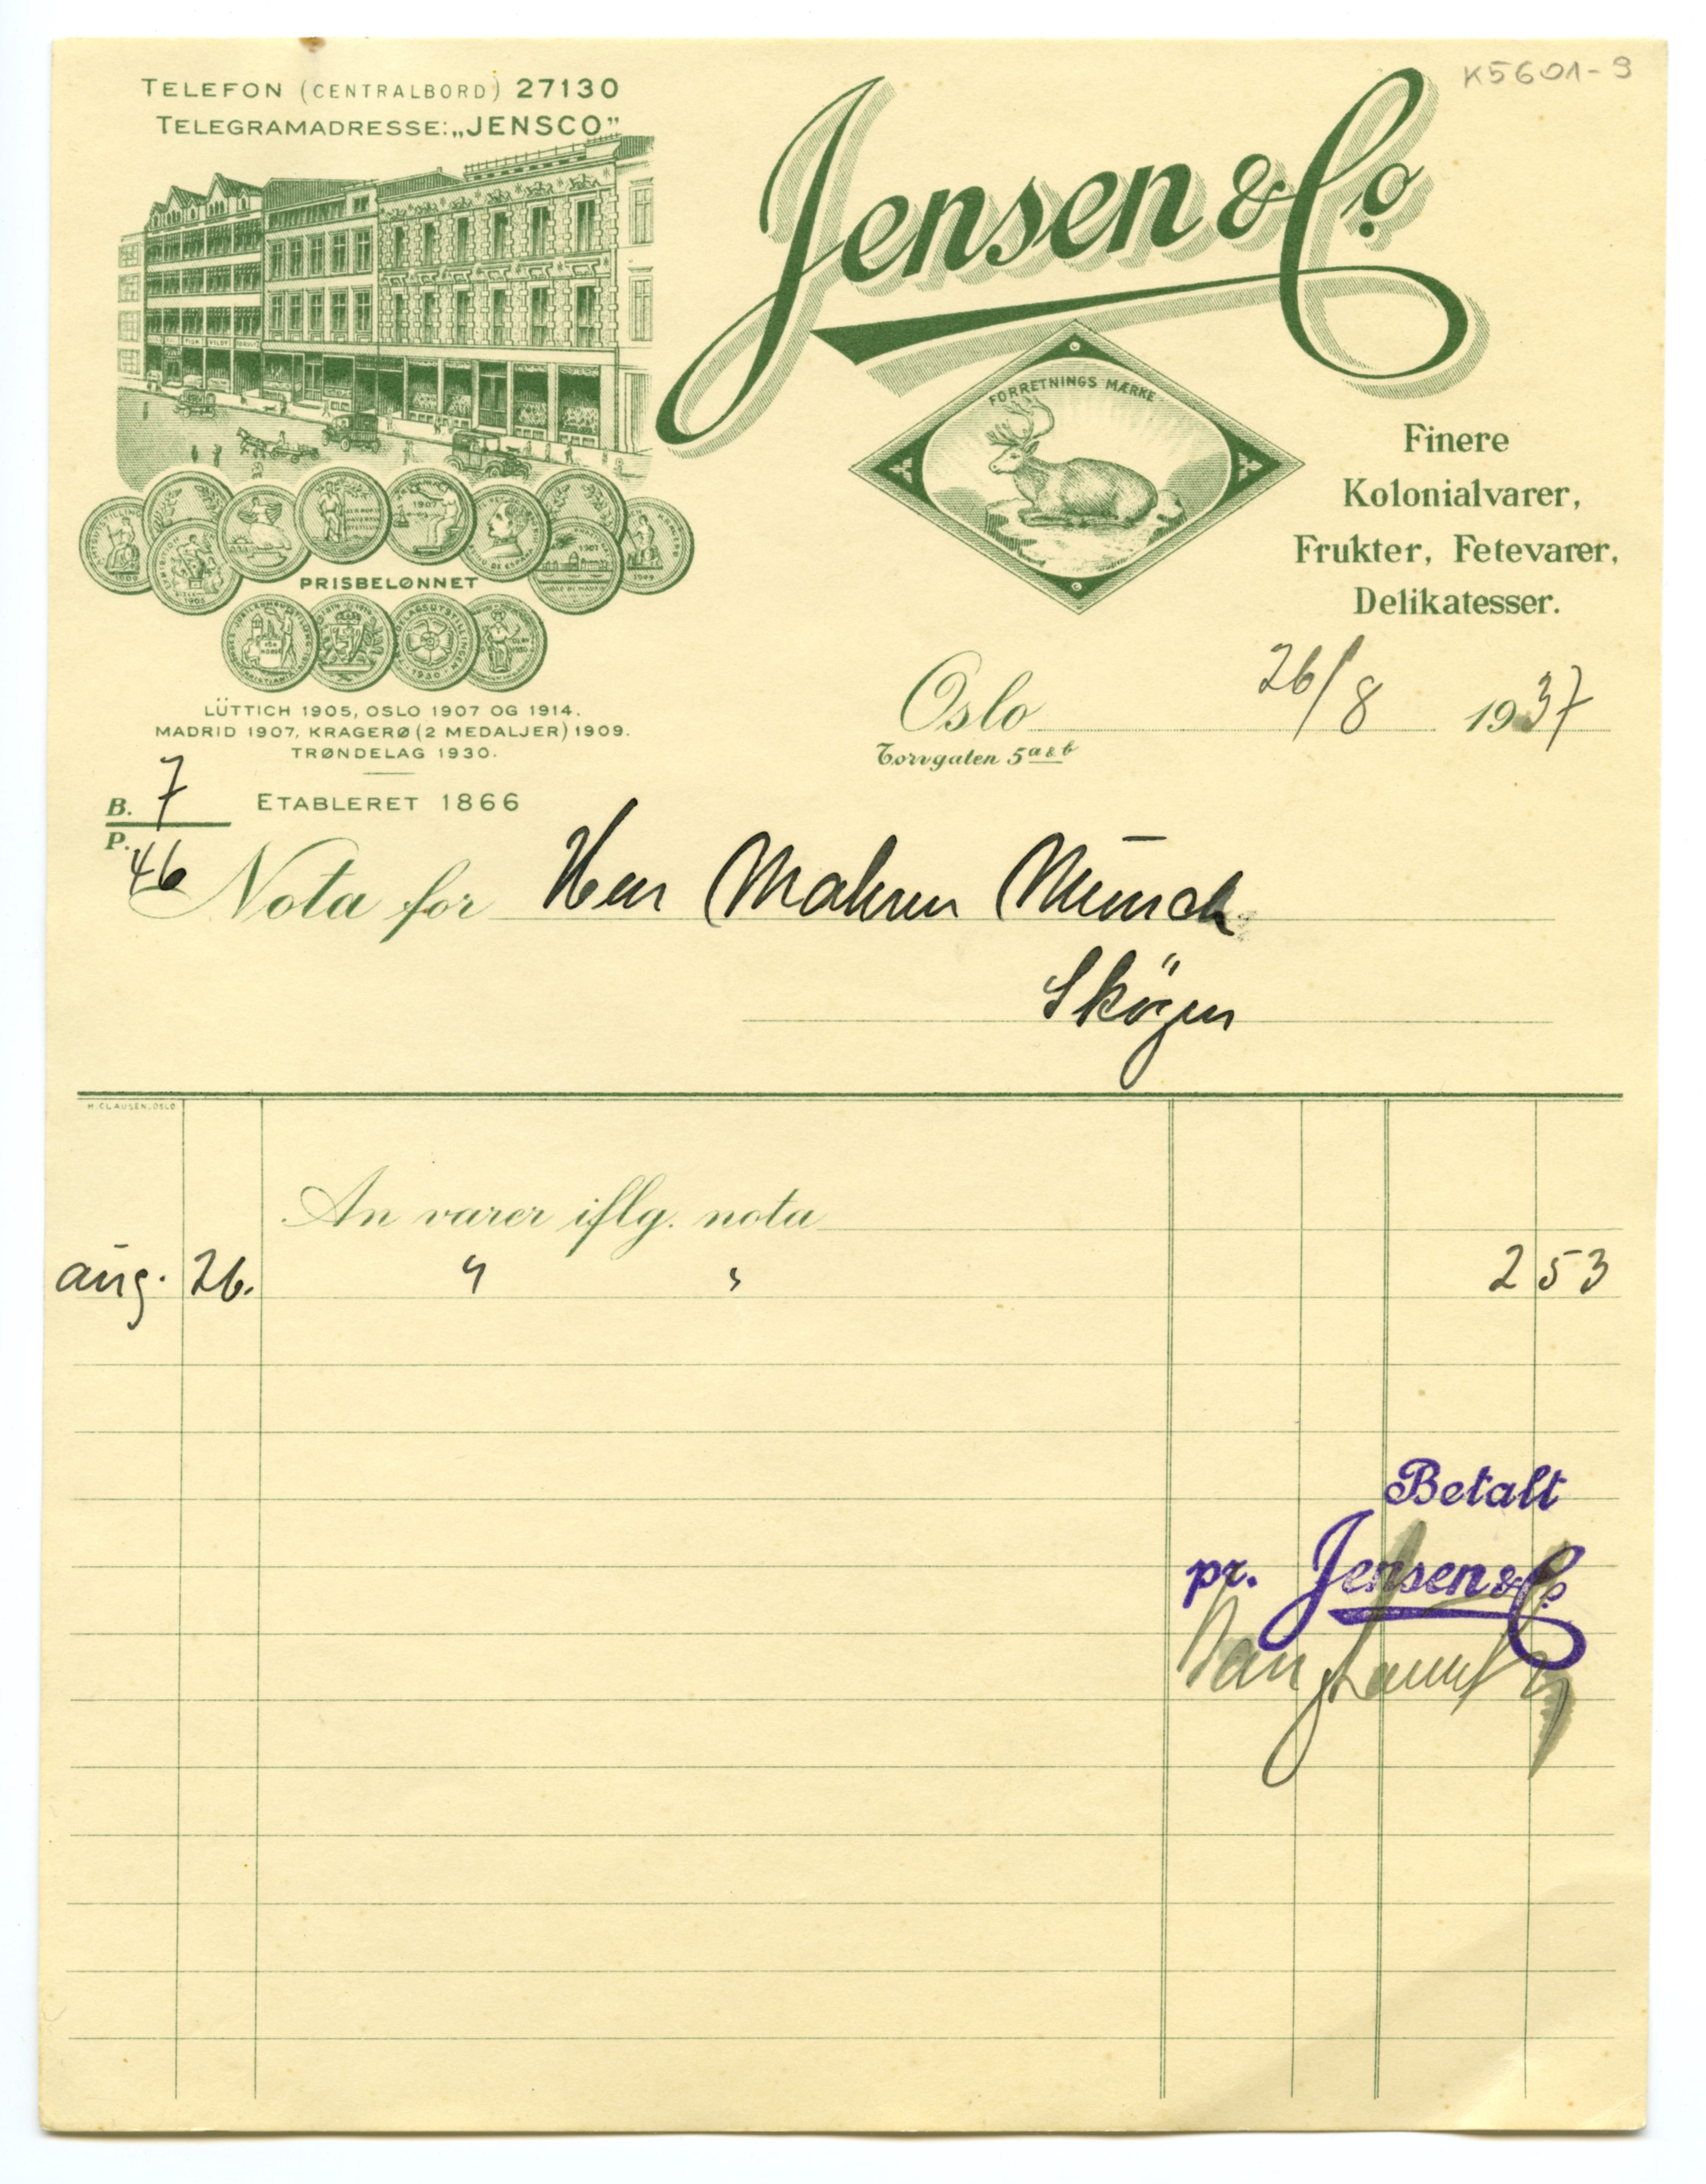 K5601-9
TELEFON (CENTRALBORD) 27130
TELEGRAMADRESSE: „JENSCO”
Jensen & Co
FORRETNINGS MÆRKE
Finere
Kolonialvarer,
Frukter, Fetevarer,
Delikatesser.
PRISBELØNNET
LÜTTICH 1905, OSLO 1907 OG 1914.
MADRID 1907, KRAGERØ (2 MEDALJER) 1909.
TRØNDELAG 1930.
ETABLERET 1866
Oslo 26/8 1937
Torvgaten 5 a & b
B. 7
P. 46
Nota for Herr Maleren Munch
Sköyen
H. CLAUSEN, OSLO
An varer iflg. nota
aug. 26. " " 2 53
Betalt
pr. Jensen & Co